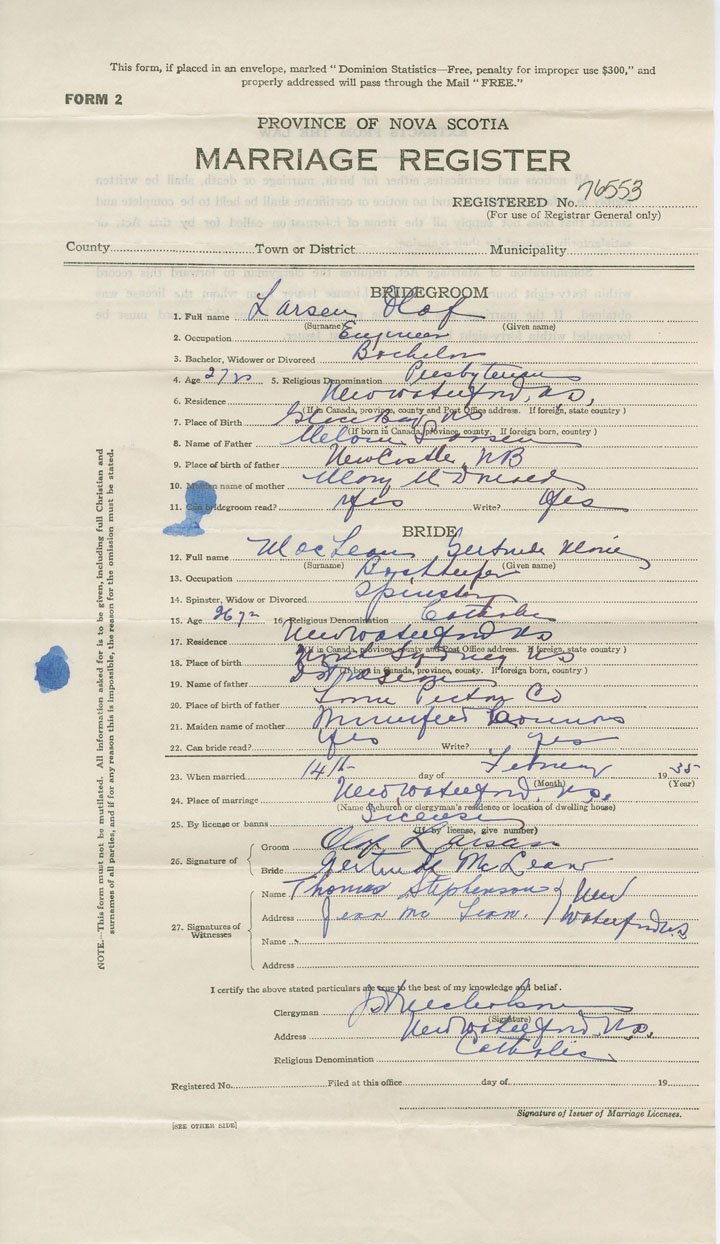 This form, if placed in an envelope, marked “Dominion Statistics—Free, penalty for improper use $300,” and
properly addressed will pass through the Mail “FREE.”
FORM 2
PROVINCE OF NOVA SCOTIA
MARRIAGE REGISTER
REGISTERED No. 76553
(For use of Registrar General only)
County Town or District Municipality
BRIDEGROOM
1. Full name Larsen Olof
(Surname) (Given name)
2. Occupation Engineer
3. Bachelor, Widower or Divorced Bachelor
4. Age 27 yrs 5. Religious Denomination Presbyterian
6. Residence New Waterford, N.S.
(If in Canada, province, county and Post Office address. If foreign, state country)
7. Place of Birth Glace Bay NS
(If born in Canada, province, county. If foreign born, country)
8. Name of Father Larsen
9. Place of birth of father New Castle, NB
10. Maiden name of mother Mary McDonald
11. Can bridegroom read? Yes Write? Yes
BRIDE
12. Full name MacLean Gertrude Marie
(Surname) (Given name)
13. Occupation Bookkeeper
14. Spinster, Widow or Divorced Spinster
15. Age 26 yrs 16. Religious Denomination Catholic
17. Residence New Waterford NS
(If in Canada, province, county and Post Office address. If foreign, state country)
18. Place of birth North Sydney NS
(If born in Canada, province, county. If foreign born, country)
19. Name of father
20. Place of birth of father Lorne Pictou Co
21. Maiden name of mother Winnifred
22. Can bride read? Yes Write? Yes
23. When married 14th day of February 1935
(Month) (Year)
24. Place of marriage New Waterford, N.S.
(Name of church or clergyman's residence or location of dwelling house)
25. By license or banns License
(If by license, give number)
26. Signature of
Groom Olof Larsen
Bride Gertrude McLean
27. Signatures of Witnesses
Name Thomas Stephenson New
Address Jean McLean. Waterford N.S.
Name
Address
I certify the above stated particulars are true to the best of my knowledge and belief.
Clergyman
(Signature)
Address New Waterford, N.S.
Religious Denomination Catholic
Registered No. Filed at this office day of 19
Signature of Issuer of Marriage Licenses.
[SEE OTHER SIDE]
NOTE.—This form must not be mutilated. All information asked for is to be given, including full Christian and
surnames of all parties, and if for any reason this is impossible, the reason for the omission must be stated.